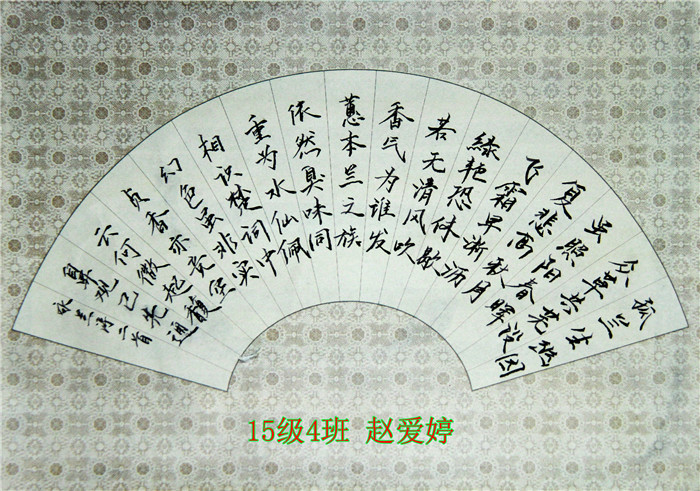 孤兰生幽园
众草共芜没
虽照阳春晖
复悲高秋月
飞霜早淅沥
绿艳恐休歇
若无清风吹
香气为谁发
蕙本兰之族
依然臭味同
重为水仙佩
相识楚词中
幻色虽非实
贞香亦竟空
云何微起馥
鼻观已先通
咏兰诗二首
15级4班 赵爱婷